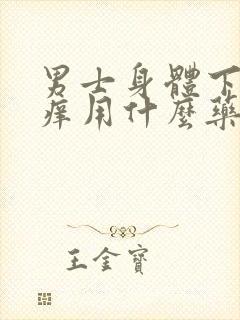 男士身體下
痒用什麼藥
王金寶